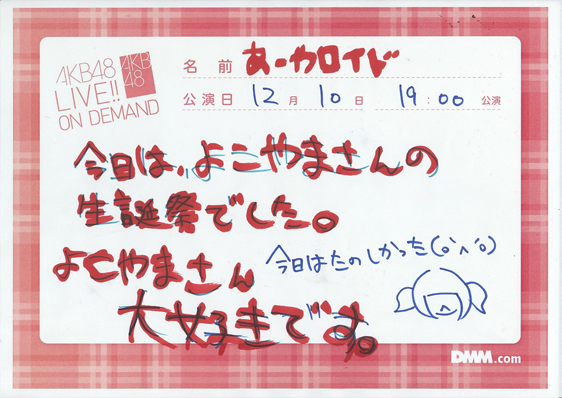 AKB48
LIVE!!
ON DEMAND
AKB
48
名前 あーやロイド
公演日 12月10日 19:00 公演
今日は、よこやまさんの
生誕祭でした。
よこやまさん
今日はたのしかった(o`∧´o)
大好きです。
DMM.com